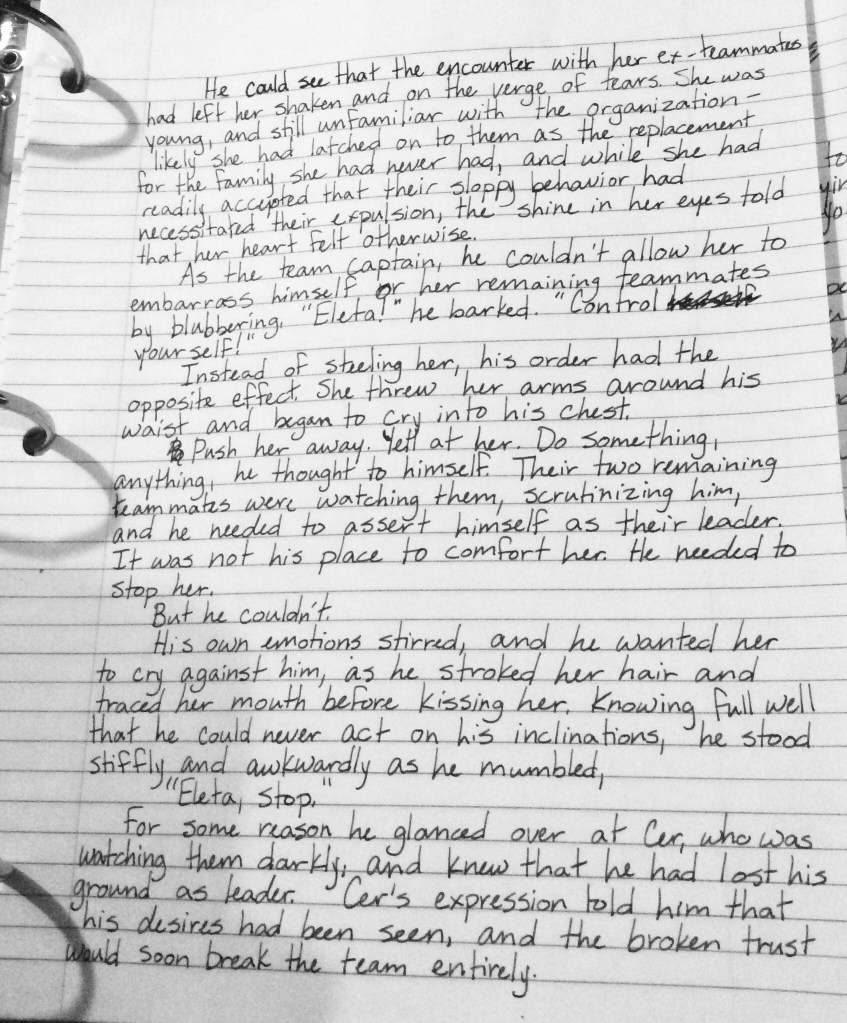 He could see that the encounter with her ex-teammates
had left her shaken and on the verge of tears. She was
young, and still unfamiliar with the organization -
likely she had latched on to them as the replacement
for the family she had never had, and while she had
readily accepted that their sloppy behavior had
necessitated their expulsion, the shine in her eyes told
that her heart felt otherwise.
As the team captain, he couldn't allow her to
embarrass himself or her remaining teammates
by blubbering. "Eleta!" he barked. "Control
yourself!"
Instead of steeling her, his order had the
opposite effect. She threw her arms around his
waist and began to cry into his chest.
Push her away. Yell at her. Do something,
anything, he thought to himself. Their two remaining
teammates were watching them, scrutinizing him,
and he needed to assert himself as their leader.
It was not his place to comfort her. He needed to
stop her.
But he couldn't.
His own emotions stirred, and he wanted her
to cry against him, as he stroked her hair and
traced her mouth before kissing her. Knowing full well
that he could never act on his inclinations, he stood
stiffly and awkwardly as he mumbled,
"Eleta, stop."
For some reason he glanced over at Cer, who was
watching them darkly, and knew that he had lost his
ground as leader. Cer's expression told him that
his desires had been seen, and the broken trust
would soon break the team entirely.
to